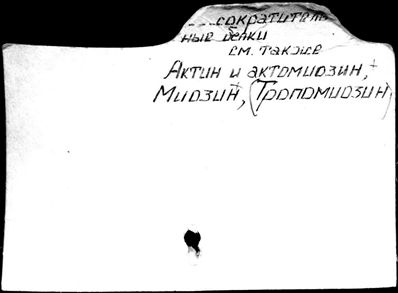 ....сократитель
ные белки
см. также
Актин и актомиозин,+
Миозин+, (Тропомиозин)